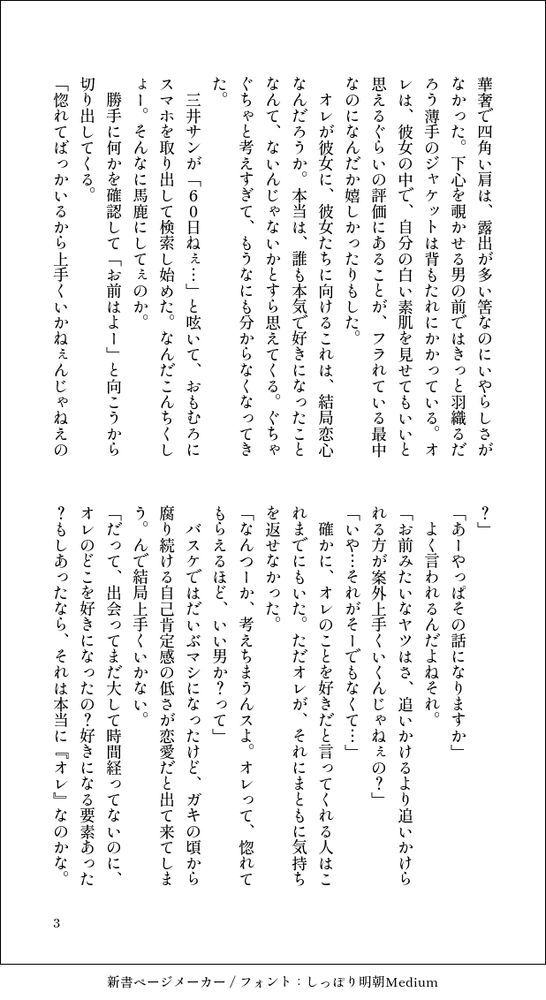 華奢で四角い肩は、露出が多い筈なのにいやらしさが
なかった。下心を覗かせる男の前ではきっと羽織るだ
ろう薄手のジャケットは背もたれにかかっている。オ
レは、彼女の中で、自分の白い素肌を見せてもいいと
思えるぐらいの評価にあることが、フラれている最中
なのになんだか嬉しかったりもした。
オレが彼女に、彼女たちに向けるこれは、結局恋心
なんだろうか。本当は、誰も本気で好きになったこと
なんて、ないんじゃないかとすら思えてくる。ぐちゃ
ぐちゃと考えすぎて、もうなにも分からなくなってき
た。
三井サンが「60日ねぇ…」と呟いて、おもむろに
スマホを取り出して検索し始めた。なんだこんちくし
ょー。そんなに馬鹿にしてぇのか。
勝手に何かを確認して「お前はよー」と向こうから
切り出してくる。
「惚れてばっかいるから上手くいかねぇんじゃねえの
？」
「あーやっぱその話になりますか」
よく言われるんだよねそれ。
「お前みたいなヤツはさ、追いかけるより追いかけら
れる方が案外上手くいくんじゃねぇの？」
「いや…それがそーでもなくて…」
確かに、オレのことを好きだと言ってくれる人はこ
れまでにもいた。ただオレが、それにまともに気持ち
を返せなかった。
「なんつーか、考えちまうんスよ。オレって、惚れて
もらえるほど、いい男か？って」
バスケではだいぶマシになったけど、ガキの頃から
腐り続ける自己肯定感の低さが恋愛だと出て来てしま
う。んで結局上手くいかない。
「だって、出会ってまだ大して時間経ってないのに、
オレのどこを好きになったの？好きになる要素あった
？もしあったなら、それは本当に『オレ』なのかな。
3
新書ページメーカー / フォント：しっぽり明朝Medium